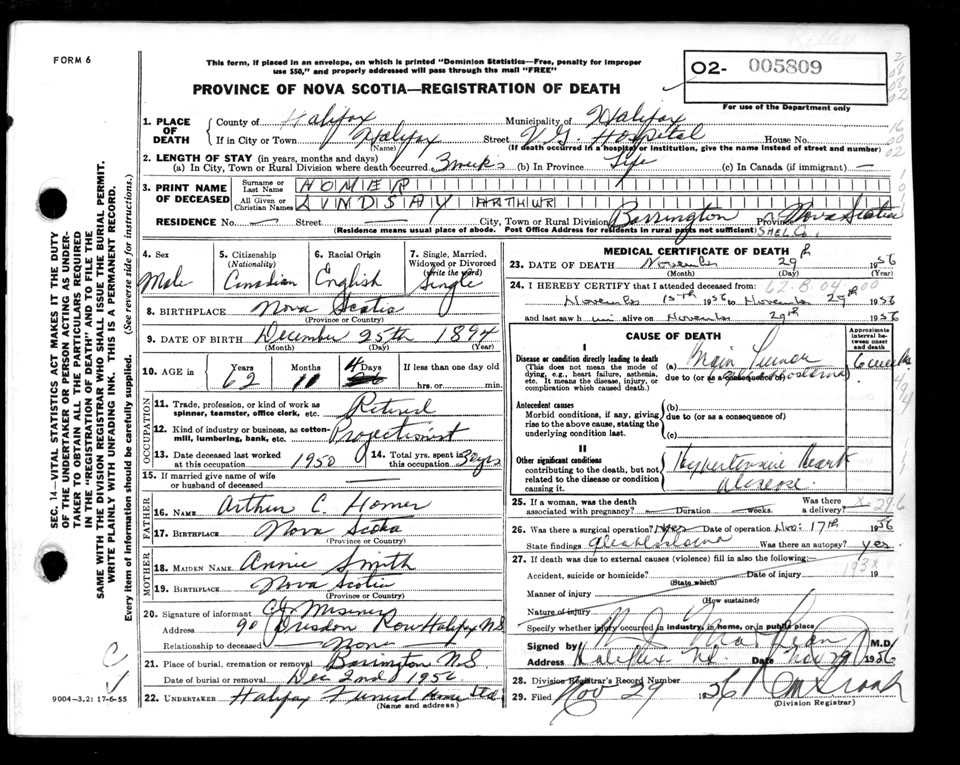 FORM 6
This form, if placed in an envelope, on which is printed "Dominion Statistics—Free, penalty for improper
use $50," and properly addressed will pass through the mail "FREE"
PROVINCE OF NOVA SCOTIA—REGISTRATION OF DEATH
O2- 005809
For use of the Department only
1. PLACE OF DEATH
County of Halifax Municipality of Halifax
If in City or Town Halifax Street V.G. Hospital House No.
(Name) (If death occurred in a hospital or institution, give the name instead of street and number)
2. LENGTH OF STAY (in years, months and days)
(a) In City, Town or Rural Division where death occurred 3 weeks (b) In Province Life (c) In Canada (if immigrant) —
3. PRINT NAME OF DECEASED
Surname or Last Name HOMER
All Given or Christian Names LINDSAY ARTHUR
RESIDENCE No. — Street — City, Town or Rural Division Barrington Province Nova Scotia
(Residence means usual place of abode. Post Office Address for residents in rural parts not sufficient) SHEL. Co.
4. Sex Male
5. Citizenship (Nationality) Canadian
6. Racial Origin English
7. Single, Married, Widowed or Divorced (Write the word) Single
8. BIRTHPLACE Nova Scotia
(Province or Country)
9. DATE OF BIRTH December 25th 1894
(Month) (Day) (Year)
10. AGE in Years 62 Months 11 Days 4 If less than one day old
hrs. or min.
OCCUPATION
11. Trade, profession, or kind of work as spinner, teamster, office clerk, etc. Retired
12. Kind of industry or business, as cotton-mill, lumbering, bank, etc. Projectionist
13. Date deceased last worked at this occupation 1950
14. Total yrs. spent in this occupation 30 yrs
15. If married give name of wife or husband of deceased —
FATHER
16. NAME Arthur C. Homer
17. BIRTHPLACE Nova Scotia
(Province or Country)
MOTHER
18. MAIDEN NAME Annie Smith
19. BIRTHPLACE Nova Scotia
(Province or Country)
20. Signature of informant Misener
Address 90 Row Halifax N.S.
Relationship to deceased Non
21. Place of burial, cremation or removal Barrington N.S.
Date of burial or removal Dec 2nd 1956
22. UNDERTAKER Halifax Funeral Home Ltd
(Name and address)
MEDICAL CERTIFICATE OF DEATH
23. DATE OF DEATH November 29th 1956
(Month) (Day) (Year)
24. I HEREBY CERTIFY that I attended deceased from:
November 15th 1956 to November 29th 1956
and last saw him alive on November 29th 1956
CAUSE OF DEATH
Approximate interval between onset and death
I
Disease or condition directly leading to death
(This does not mean the mode of dying, e.g., heart failure, asthenia, etc. It means the disease, injury, or complication which caused death.)
(a) Brain Tumor 6 weeks
due to (or as a consequence of) Glioblastoma
Antecedent causes
Morbid conditions, if any, giving rise to the above cause, stating the underlying condition last.
(b)
due to (or as a consequence of)
(c)
II
Other significant conditions
contributing to the death, but not related to the disease or condition causing it.
Hypertensive Heart Disease.
25. If a woman, was the death associated with pregnancy? Duration weeks. Was there a delivery?
26. Was there a surgical operation? Yes Date of operation Nov. 17th 1956
State findings Glioblastoma Was there an autopsy? yes
27. If death was due to external causes (violence) fill in also the following:—
Accident, suicide or homicide? Date of injury 19
(State which)
Manner of injury
(How sustained)
Nature of injury
Specify whether injury occurred in industry, in home, or in public place
Signed by M.D.
Address Halifax NS Date Nov 29 1956
28. Division Registrar's Record Number
29. Filed Nov 29 1956
(Division Registrar)
SEC. 14—VITAL STATISTICS ACT MAKES IT THE DUTY
OF THE UNDERTAKER OR PERSON ACTING AS UNDER-
TAKER TO OBTAIN ALL THE PARTICULARS REQUIRED
IN THE "REGISTRATION OF DEATH" AND TO FILE THE
SAME WITH THE DIVISION REGISTRAR WHO SHALL ISSUE THE BURIAL PERMIT.
WRITE PLAINLY WITH UNFADING INK. THIS IS A PERMANENT RECORD.
Every item of information should be carefully supplied. (See reverse side for instructions.)
9004—3.2: 17-6-55